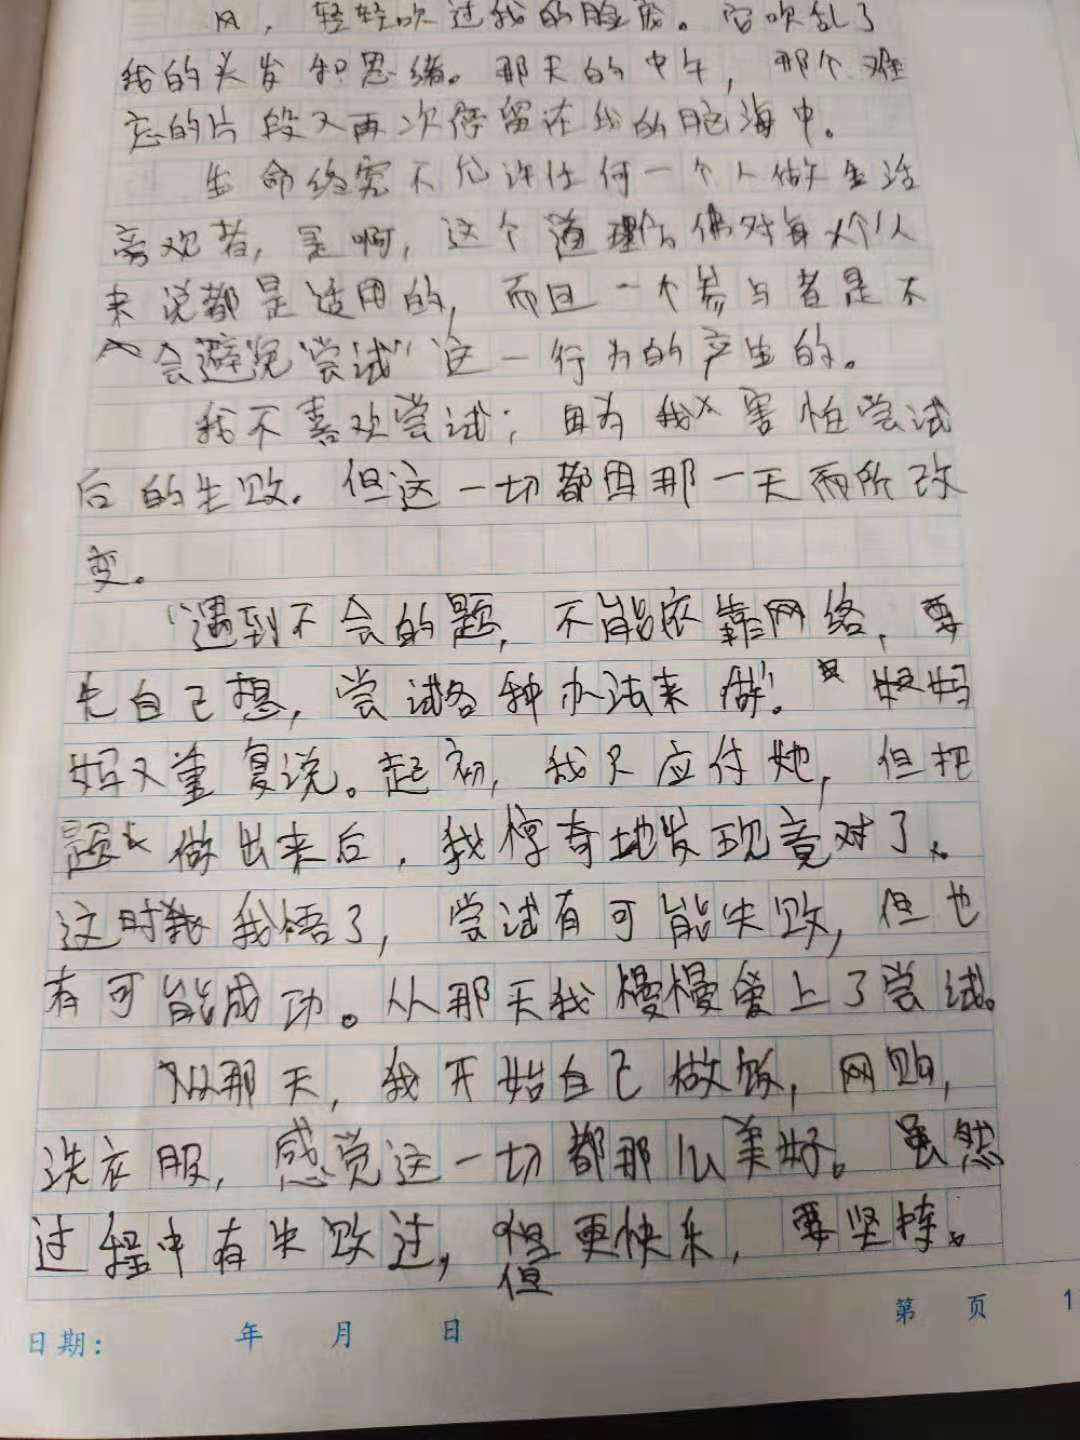 风，轻轻吹过我的脸庞。它吹乱了
我的头发和思绪。那天的中午，那个难
忘的片段又再次停留在我的脑海中。
生命终究不允许任何一个人做生活
旁观者，是啊，这个道理仿佛对每个人
来说都是适用的，而且一个参与者是不
会避免"尝试"这一行为的产生的。
我不喜欢尝试；因为我害怕尝试
后的失败。但这一切都因那一天而所改
变。
"遇到不会的题，不能依靠网络，要
先自己想，尝试各种办法来做。"妈
妈又重复说。起初，我只应付她，但把
题做出来后，我惊奇地发现竟对了。
这时我悟了，尝试有可能失败，但也
有可能成功。从那天我慢慢爱上了尝试。
从那天，我开始自己做饭，网购，
洗衣服，感觉这一切都那么美好。虽然
过程中有失败过，但更快乐，要坚持。
日期： 年 月 日 第 页 1